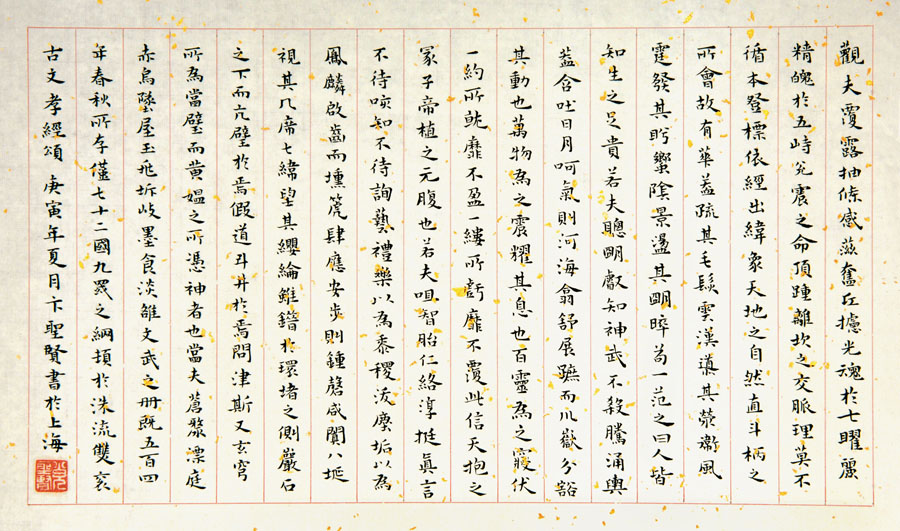 觀夫覆露抽條感蕤奮丘攄光魂於七曜麗
精魄於五峙究震之命頂踵離坎之交脈理莫不
循本登標依經出緯象天地之自然直斗柄之
所會故有華蓋疏其毛髮雲漢道其滎衛風
霆發其肹蠁陰景盪其眀晬為一范之曰人皆
知生之足貴若夫聰眀叡知神武不殺騰涌輿
蓋含吐日月呵氣則河海翕舒展蹠而川嶽分豁
其動也萬物為之震耀其息也百靈為之寢伏
一約所兟靡不盈一縷所虧靡不覆此信天抱之
冢子帝植之元腹也若夫嗢智胎仁絡淳挻真言
不待咳知不待詢藝禮樂以為黍稷泼糜垢以為
鳳麟啟齒而壎篪肆應安步則鍾磬咸闓八埏
視其几席七緯望其纓綸錐鍇於環堵之側巖石
之下而亢壁於焉假道斗井於焉問津斯又玄穹
所為當璧而黄媼之所憑神者也當夫蒿漦漂庭
赤烏墜屋玉兆坼歧墨食淡雒文武之冊既五百四
年春秋所存僅七十二國九罭之綱頓於洙流雙亥
古文孝經頌 庚寅年夏月卞聖賢書於上海